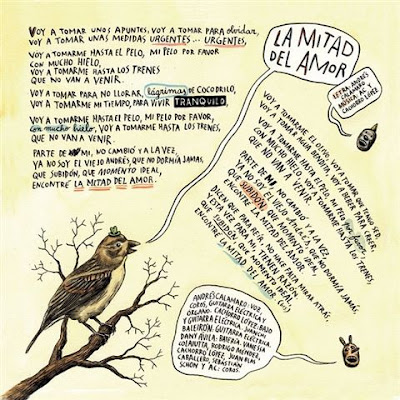 VOY A TOMAR UNOS APUNTES, VOY A TOMAR PARA olvidar,
VOY A TOMAR UNAS MEDIDAS URGENTES... URGENTES,
VOY A TOMARME HASTA EL PELO, MI PELO POR FAVOR
CON MUCHO HIELO,
VOY A TOMARME HASTA LOS TRENES
QUE NO VAN A VENIR.
VOY A TOMAR PARA NO LLORAR, lágrimas DE COCODRILO,
VOY A TOMARME MI TIEMPO, PARA VIVIR TRANQUILO,
VOY A TOMARME HASTA EL PELO, MI PELO POR FAVOR,
con mucho hielo, VOY A TOMARME HASTA LOS TRENES,
QUE NO VAN A VENIR.
PARTE DE MI, NO CAMBIÓ Y A LA VEZ,
YA NO SOY EL VIEJO ANDRÉS, QUE NO DORMÍA JAMÁS,
QUE SUBIDÓN, QUE MOMENTO IDEAL,
ENCONTRÉ LA MITAD DEL AMOR.
LA MITAD
DEL AMOR
LETRA: ANDRÉS
CALAMARO
MÚSICA: AC
CACHORRO LÓPEZ
VOY A TOMARME EL OLOR,
VOY A TOMARME HASTA EL PELO, MI PELO por favor,
CON MUCHO HIELO,
VOY A TOMARME HASTA LOS TRENES,
QUE NO VAN A VENIR.
PARTE DE MI, NO CAMBIÓ Y A LA VEZ,
YA NO SOY EL VIEJO ANDRÉS, QUE NO DORMÍA JAMÁS,
QUE SUBIDÓN, QUE MOMENTO IDEAL,
ENCONTRE LA MITAD DEL AMOR.
DICEN QUE PARA REIR, NO HACE FALTA MIRAR ATRÁS,
QUE SUBIDÓN, QUE MOMENTO IDEAL,
ENCONTRE
LA MITAD DEL AMOR
ANDRÉS CALAMARO: VOZ,
COROS, GUITARRA ELÉCTRICA Y
ÓRGANO. CACHORRO LÓPEZ: BAJO
Y GUITARRA ELÉCTRICA. JUANCHI
BALEIRÓN: GUITARRA ELÉCTRICA.
DANY AVILA: BATERÍA. VANESIA
COLAIUTTA, RODRIGO MÉNDEZ,
CACHORRO LÓPEZ, JUAN BLAS
CABALLERO, SEBASTIÁN
SCHON Y AC: COROS.